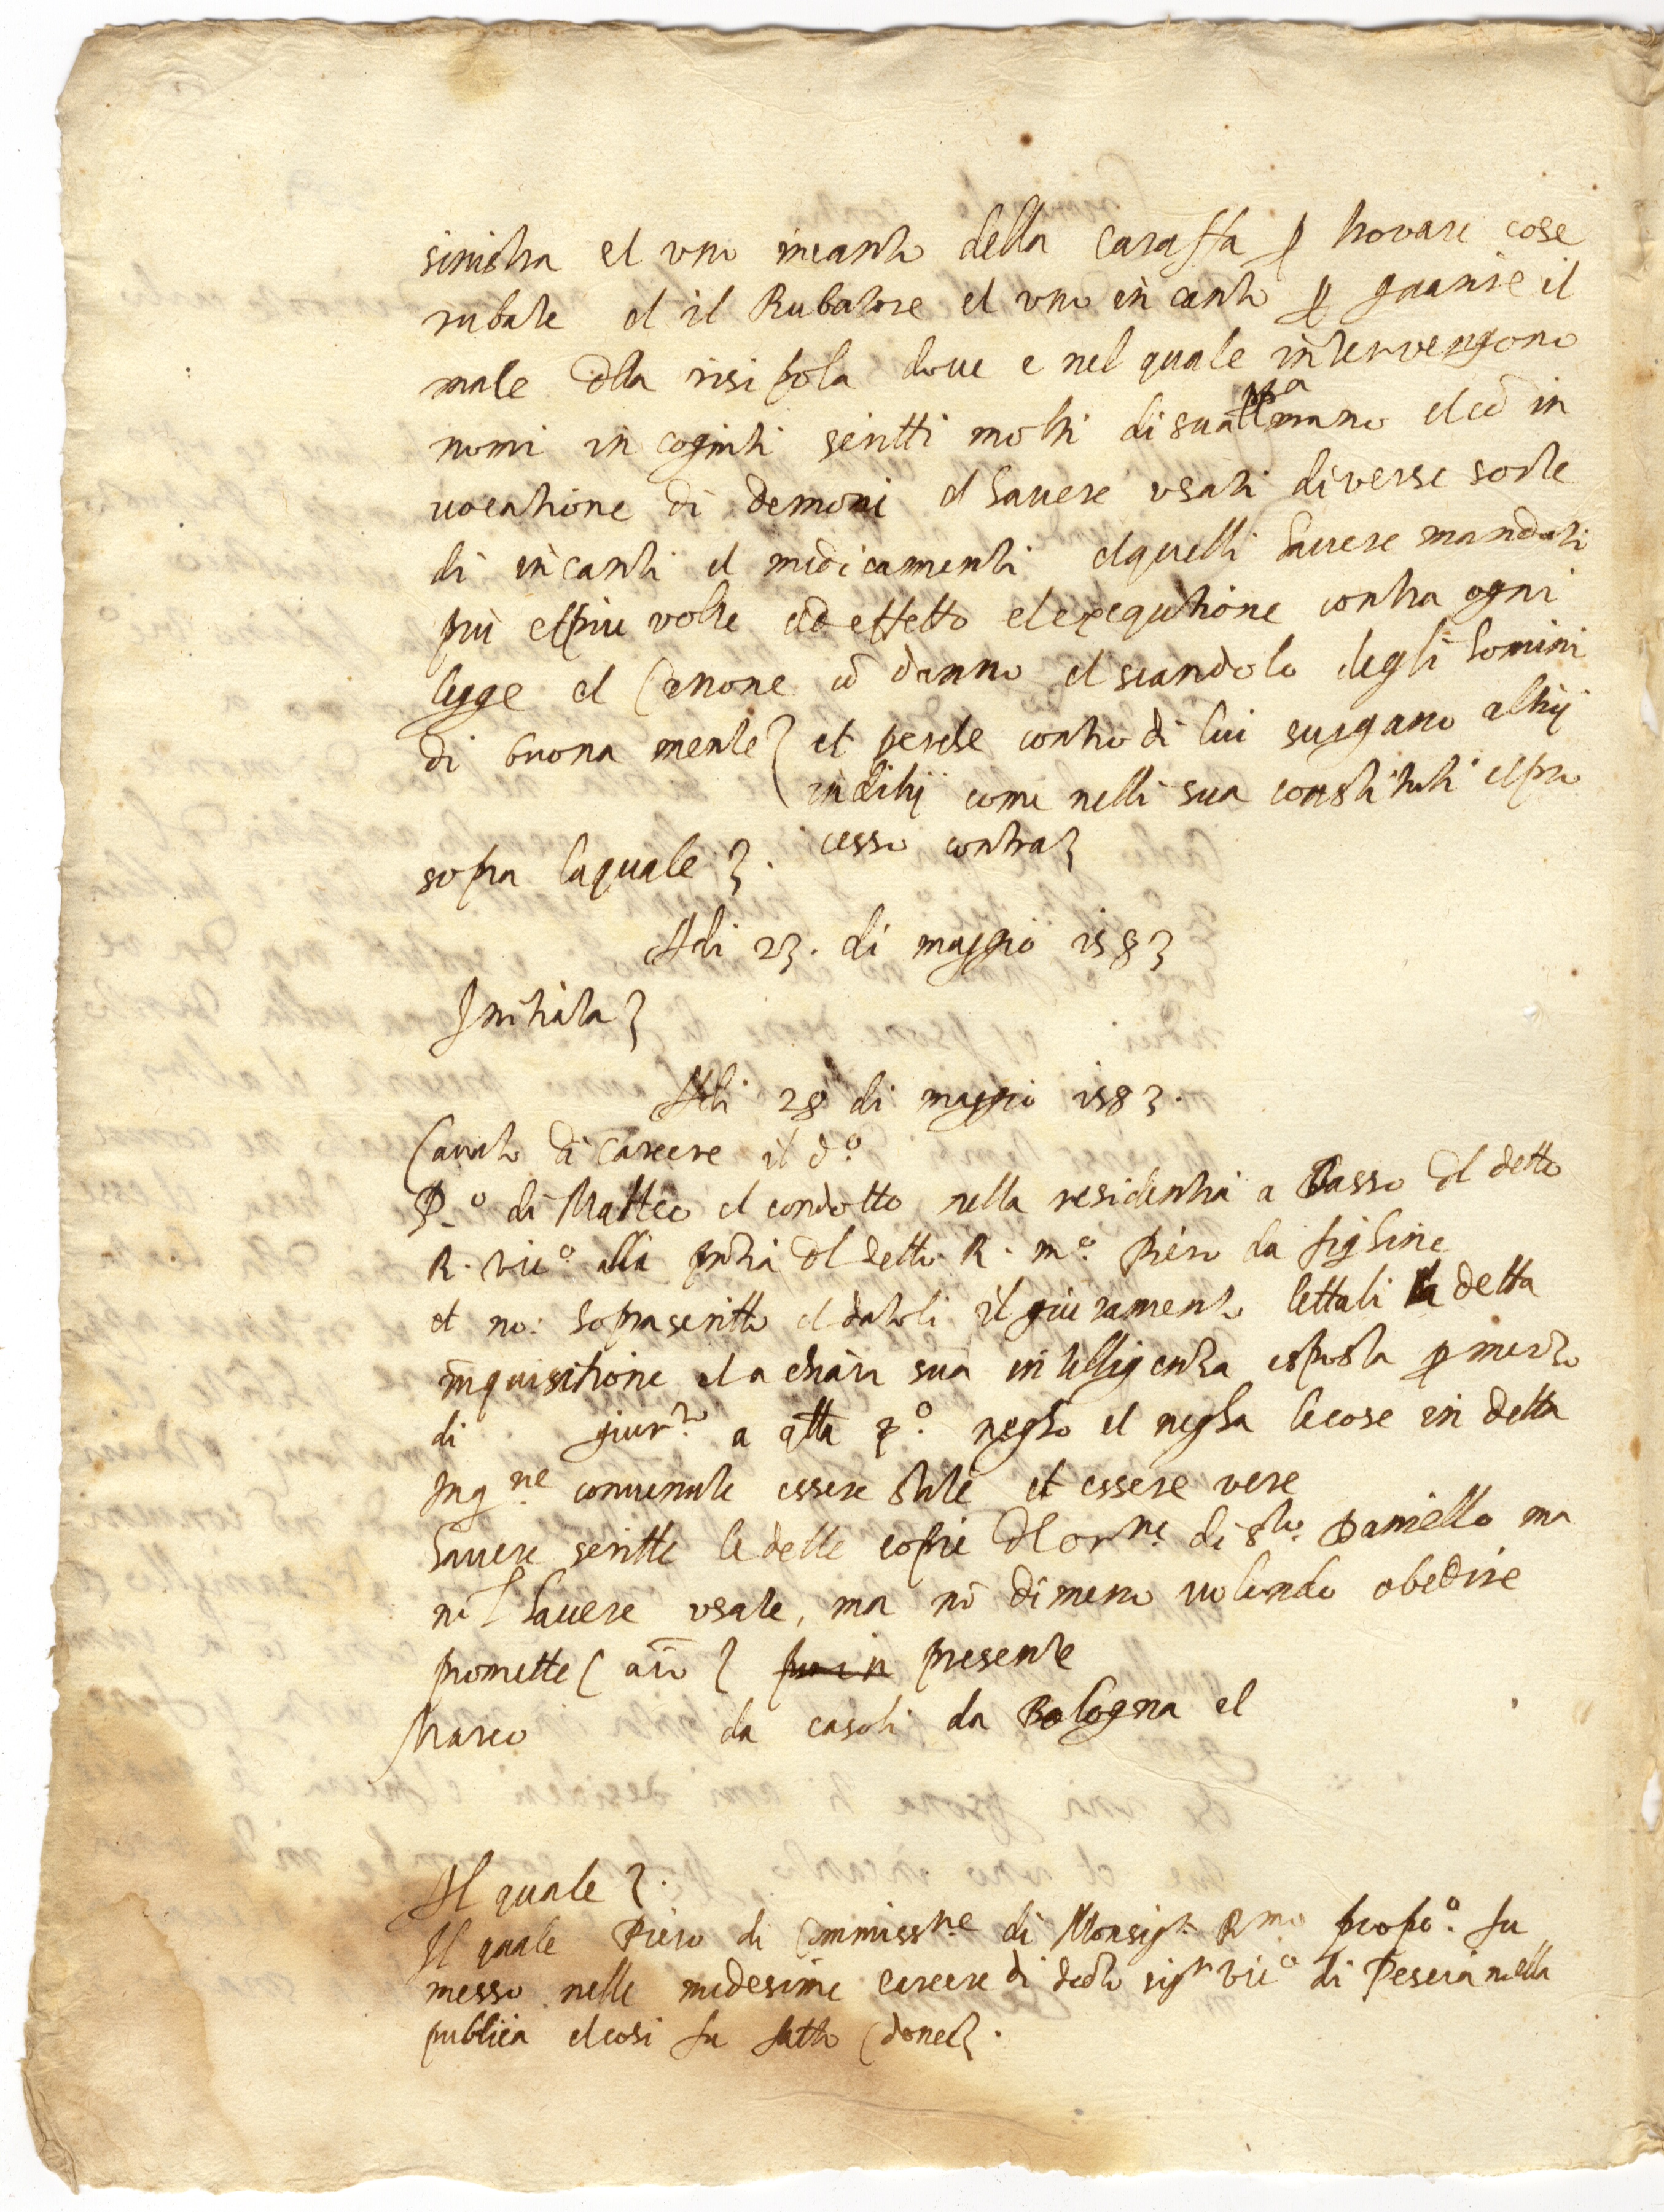 sinistra et uno incanto della Caraffa p trovare cose
rubate et il Rubatore et uno in canto p guarire il
male dlla risipola dove e nel quale intervengono
nomi in cogniti scritti molti di sua ppa mano et cō in
vocatione di demoni et havere usati diverse sorte
di in canti et medicamenti et quelli havere mandati
più et piu volte ad effetto et exequtione contra ogni
legge et Canone cō danno et scandolo degli homini
di buona mente et perche contro di lui surgano altrij
inditij come nelli sua constituti et pro
cesso contra
sopra laquale.
Adi 23. di maggio 1583
Initiata
Adi 28 di maggio 1583.
Cavato di Carcere il d.º
P.º di Matteo et condotto nella residentia a Basso dl detto
R. vic.º alla pntia dl detto R. m.º Piero da fighine
et no: soprascritto et datoli il giuramento lettali la detta
inquisitione et a chiara sua intelligentia esposta p mezo
di giur.to a qlla p.º negho et negha le cose in detta
Inq.ne contenute essere state et essere vere
havere scritte le dette copie dl or.ne di s.to Daniello ma
nō havere usate, ma nō dimeno volendo obedire
promette presente
Marco da casoli da Bologna et
Il quale.
Il quale Piero di Commiss.ne di Monsig.r R.mo propo.º fu
messo nelle medesime carcere di decto sig.r vic.º di Pescia nella
publica et cosi fu fatto donec.